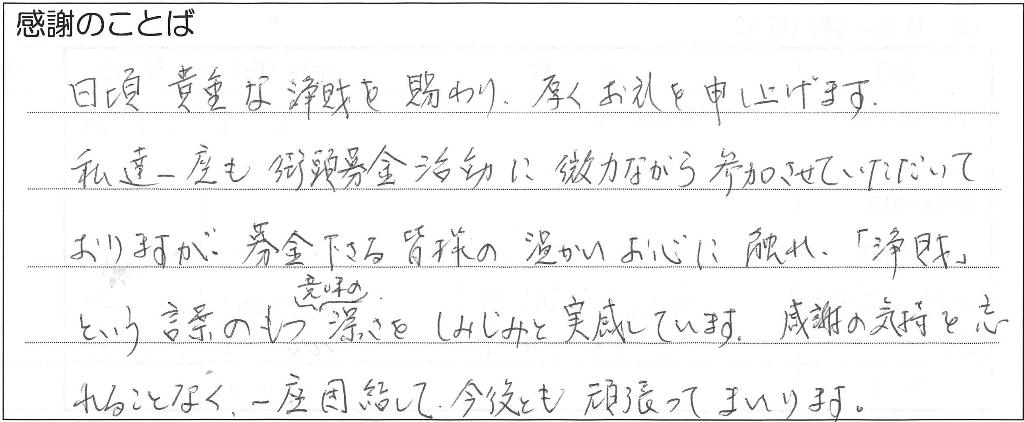 感謝のことば
日頃 貴重な浄財を賜わり、厚くお礼を申し上げます。
私達一座も街頭募金活動に微力ながら参加させていただいて
おりますが、募金下さる皆様の温かいお心に触れ、「浄財」
という言葉のもつ意味の深さをしみじみと実感しています。感謝の気持を忘
れることなく、一座団結して今後とも頑張ってまいります。